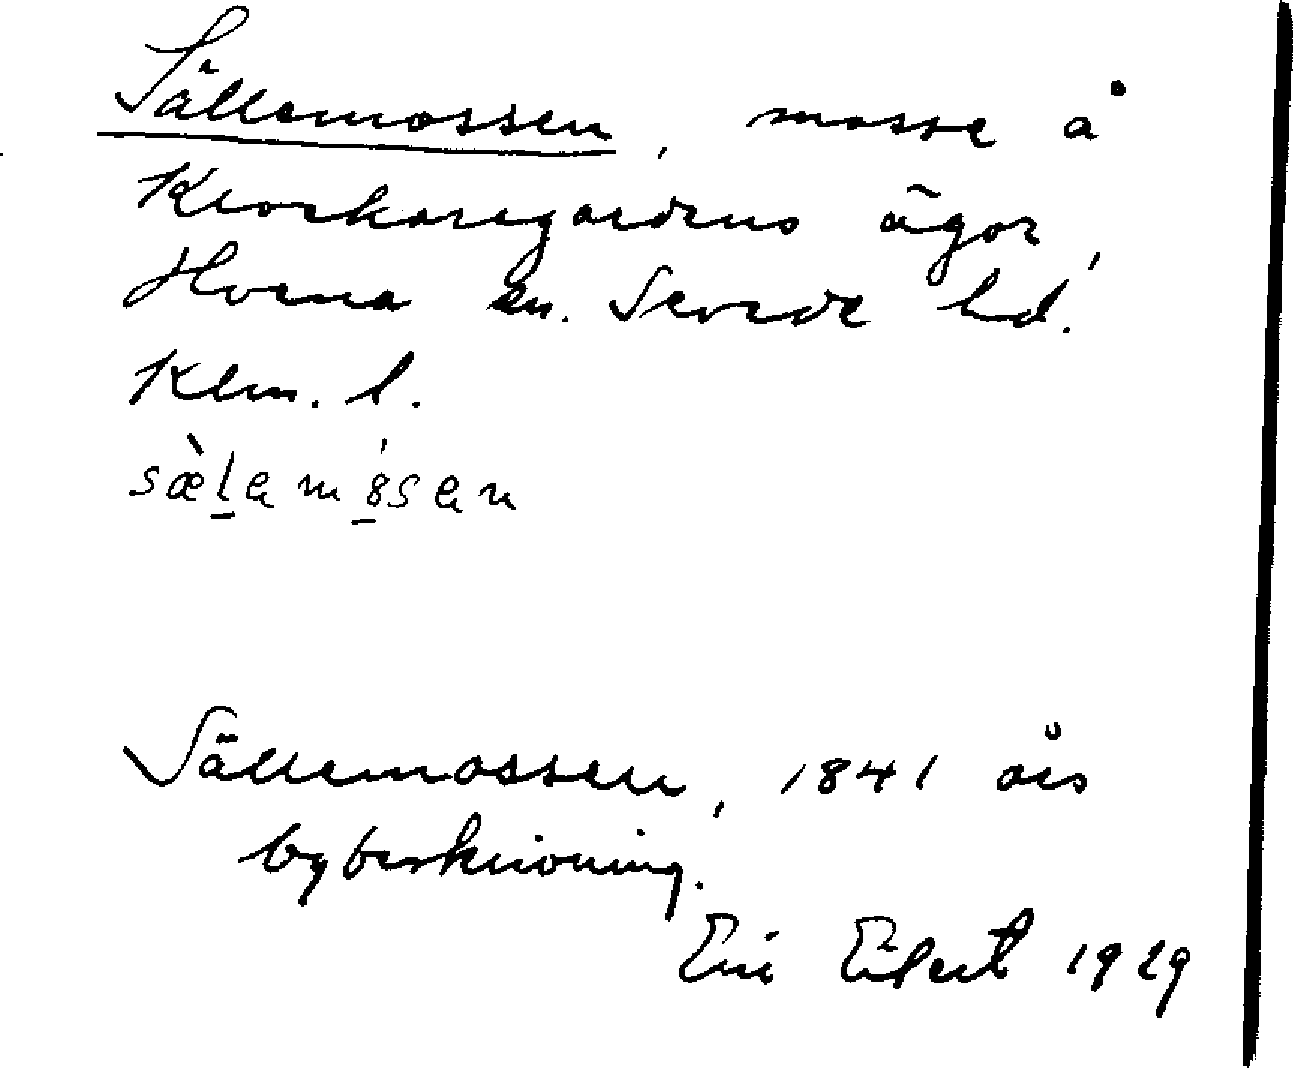 Sällemossen, mosse å
Klockaregårdens ägor,
Horna sn. Sevede hd.
Klm. l.
sæ̀lemósen
Sällemossen, 1841 års
bybeskrivning.
Eric Elfert 1929